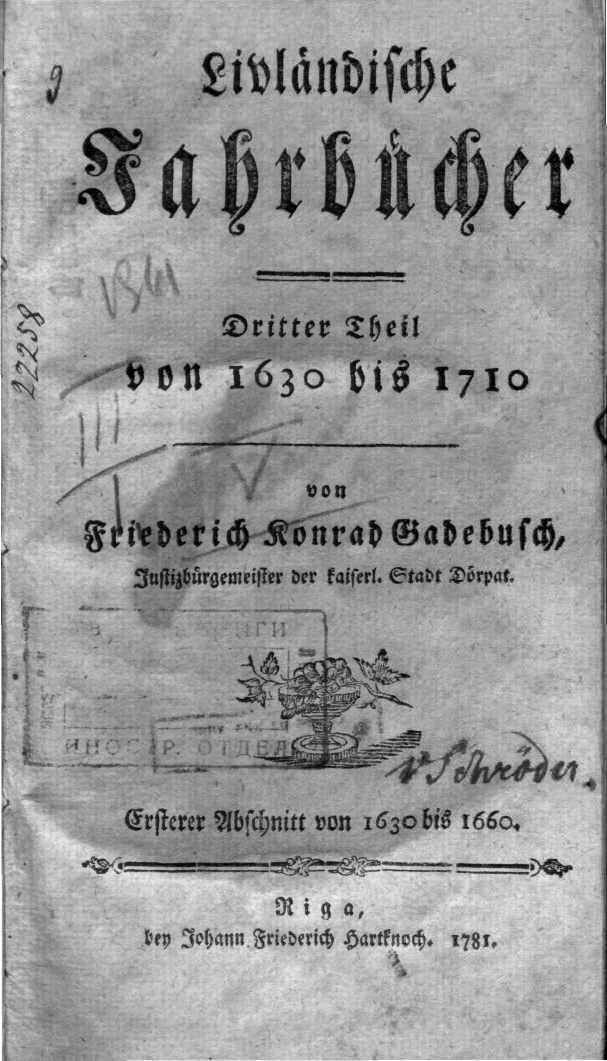 9
Livländische
Jahrbücher
Dritter Theil
von 1630 bis 1710
22258
III
V
von
Friederich Konrad Gadebusch,
Justizbürgemeister der kaiserl. Stadt Dörpat.
ИНОСТР. ОТДЕЛ
v Schröder.
Ersterer Abschnitt von 1630 bis 1660.
Riga,
bey Johann Friederich Hartknoch. 1781.